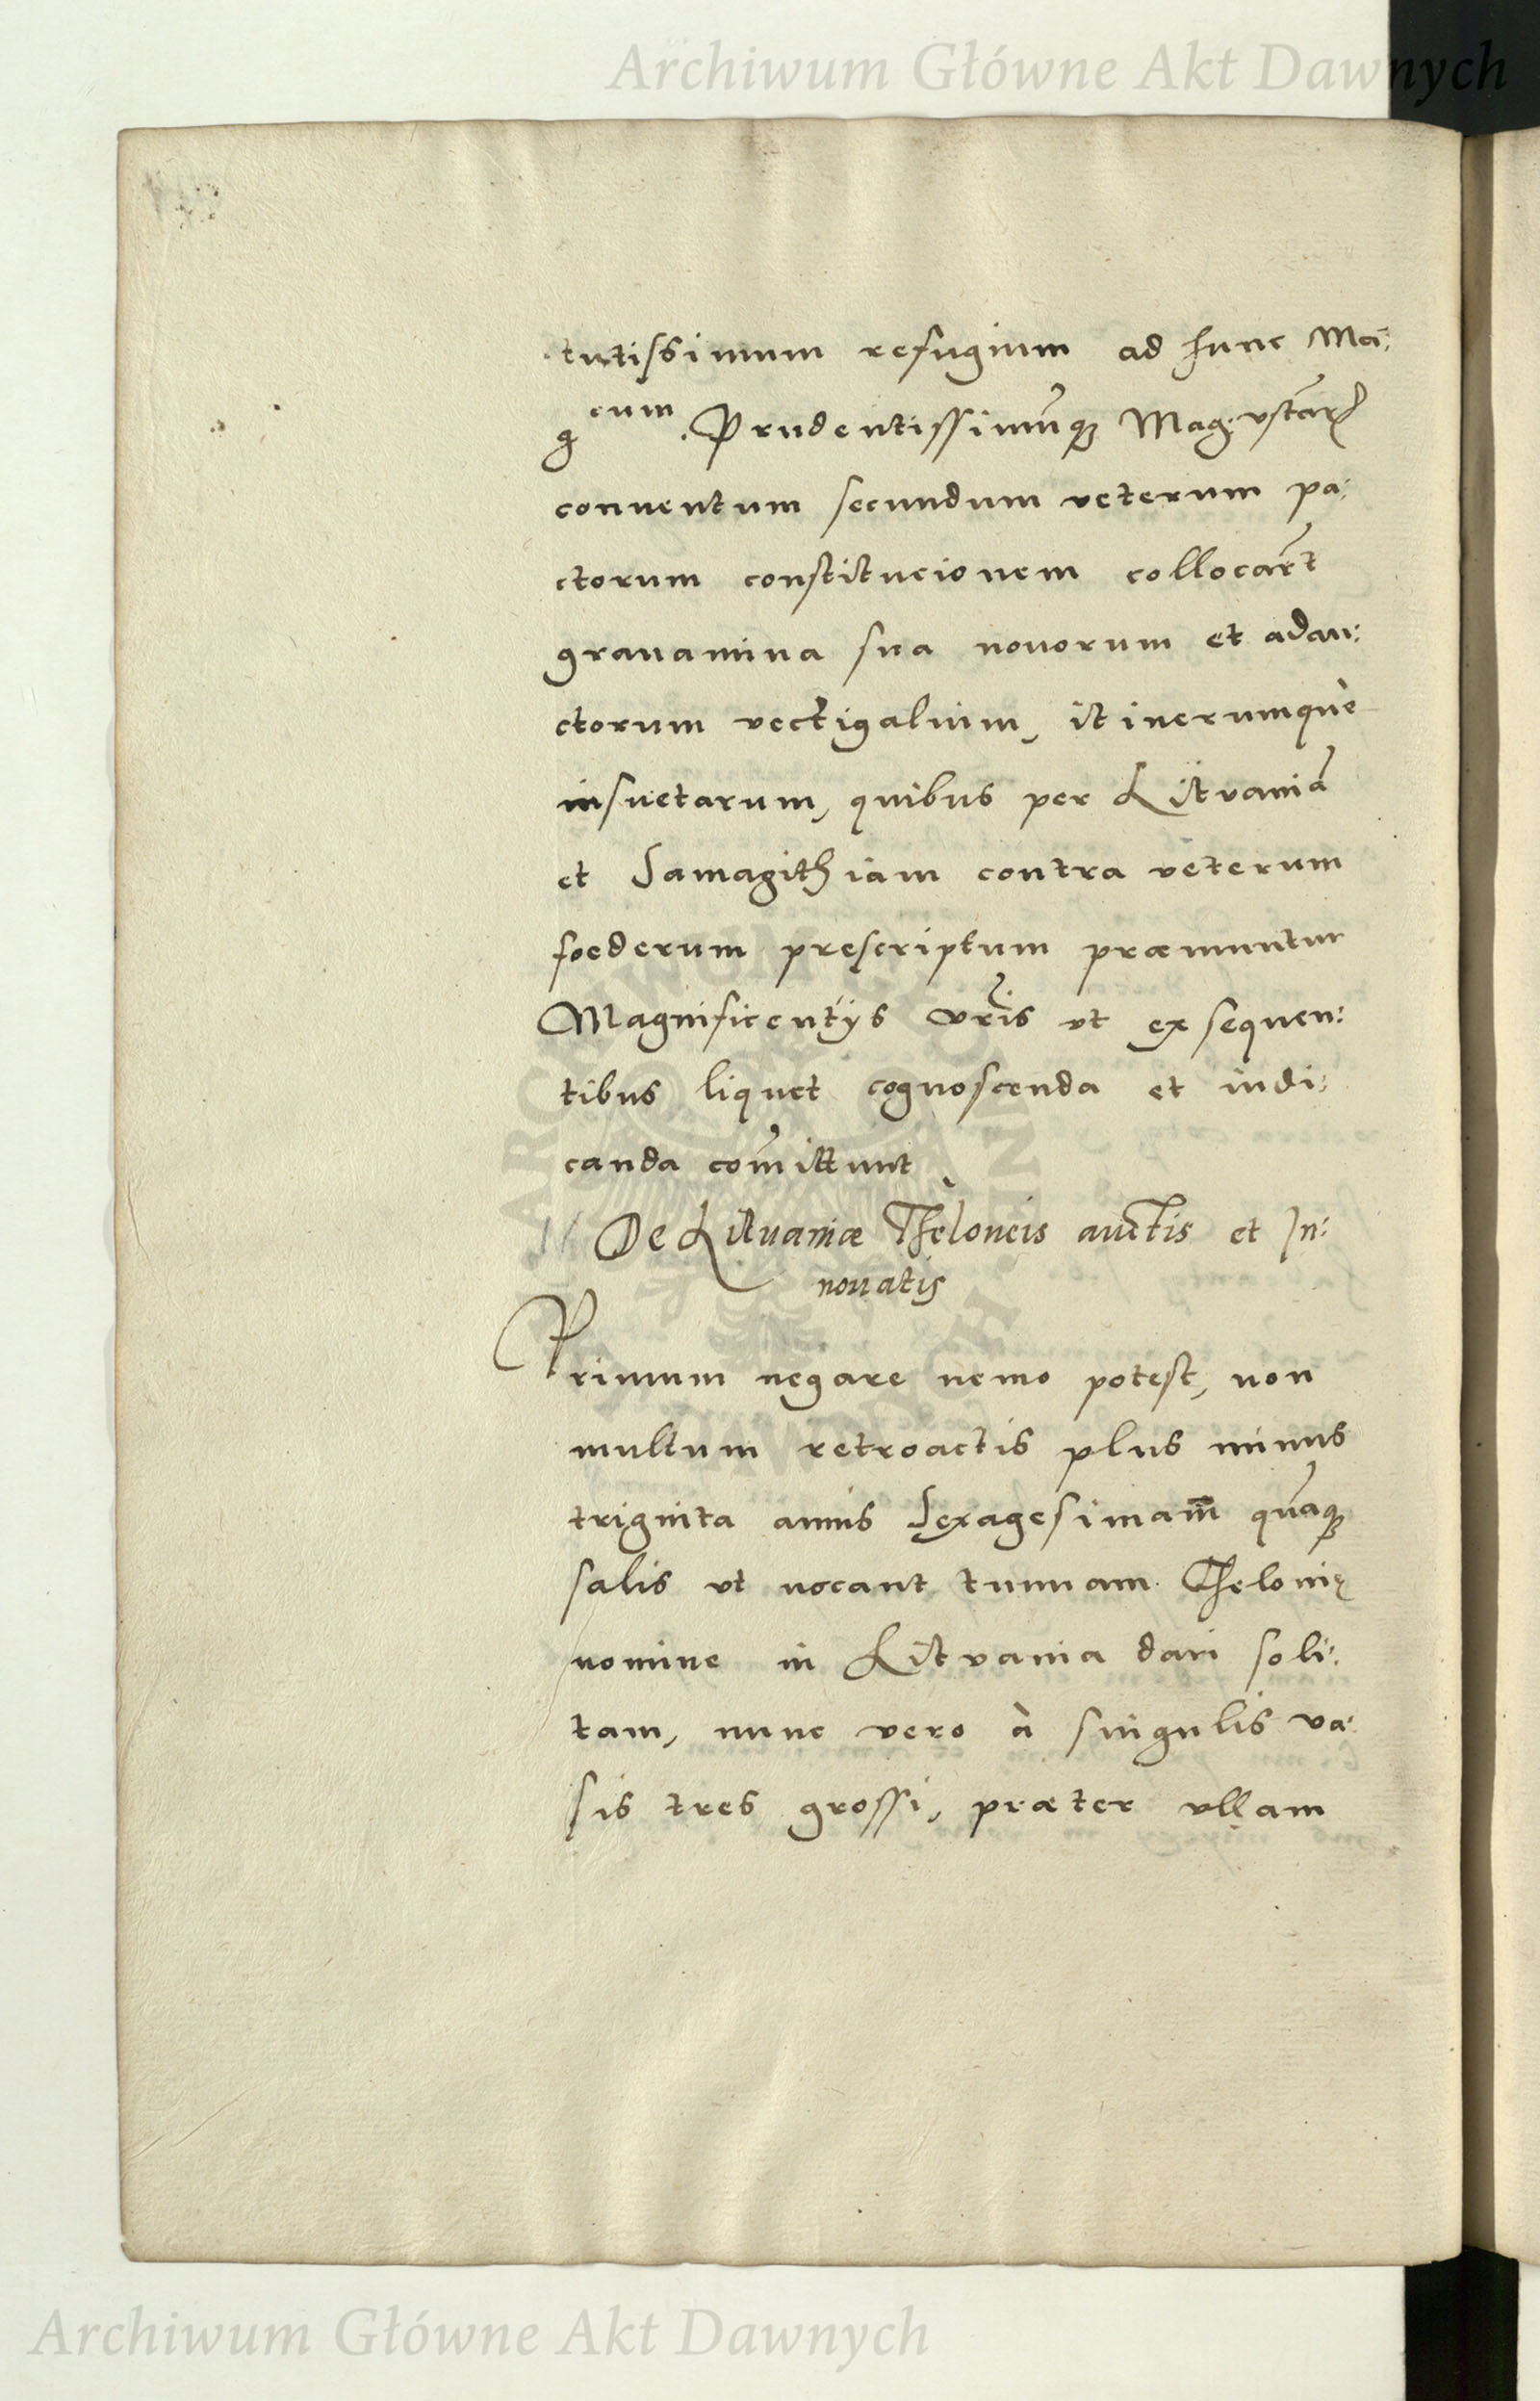 Archiwum Główne Akt Dawnych
tutissimum refugium ad hunc Ma:
g cum. Prudentissimūq₃ Mag: vstarꝝ
conuentum secundum veterum pa:
ctorum constitucionem collocar̄t
grauamina sua nouorum et adau:
ctorum vectigalium, itinerumquè
insuetarum, quibus per Litvaniā
et Samagithiam contra veterum
foederum prescriptum præmuntur
Magnificentijs vr̄is vt ex sequen:
tibus liquet cognoscenda et iudi:
canda com̄ittunt
// De Lituaniæ Theloneis auctis et In:
nouatis
Primum negare nemo potest, non
multum retroactis plus minus
triginta annis Sexagesimam̄ quāq₃
salis vt vocant tunnam Thelonię
nomine in Litvania dari soli:
tam, nunc vero à singulis va:
sis tres grossi, præter vllam
Archiwum Główne Akt Dawnych